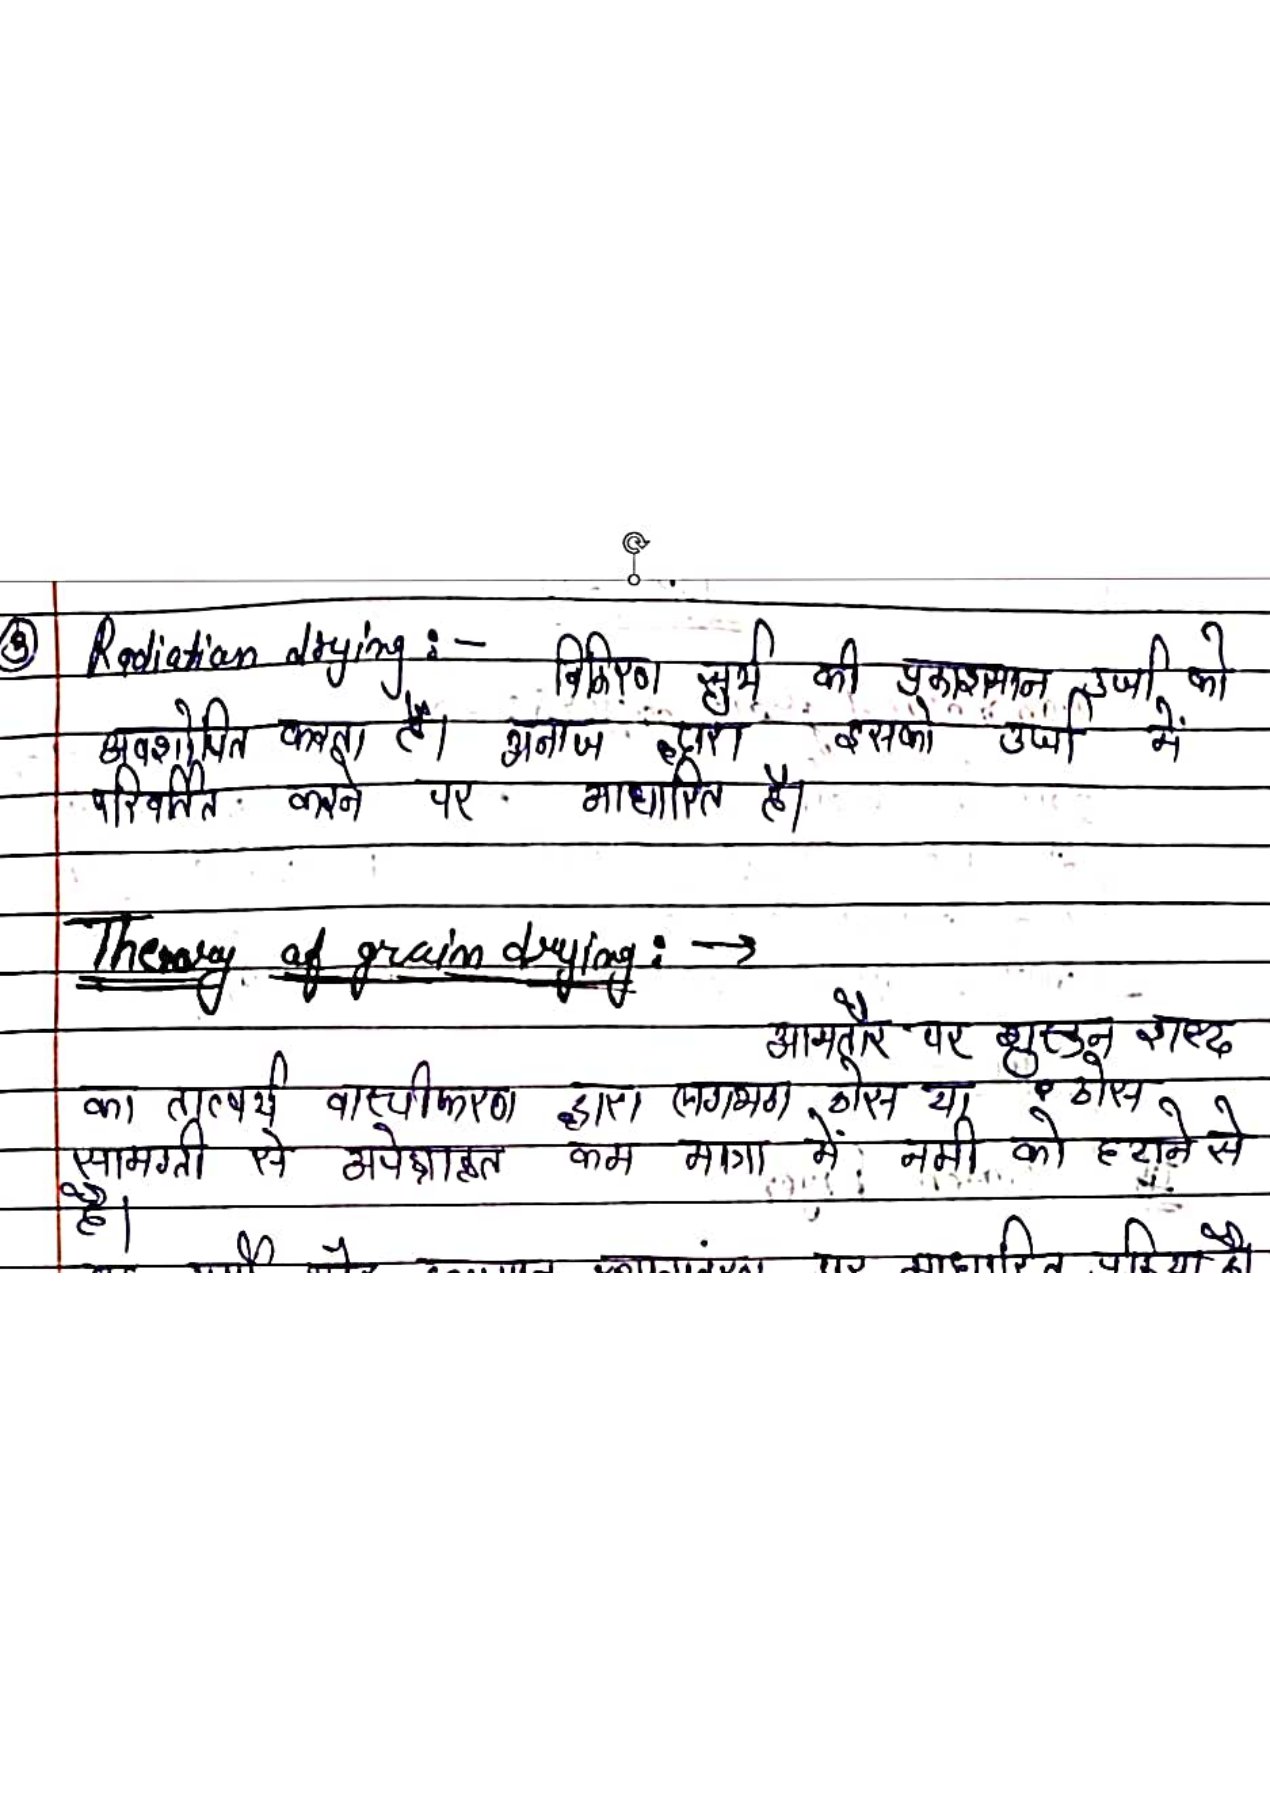 ③ Radiation drying :- विकिरण सूर्य की प्रकाशमान उर्जा को
अवशोषित करता है। अनाज द्वारा इसको उर्जा में
परिवर्तित करने पर आधारित है।
Theory of grain drying : →
आमतौर पर शब्द
का तात्पर्य वाष्पीकरण द्वारा लगभग ठोस या ठोस
सामग्री से अपेक्षाकृत कम मात्रा में नमी को हटाने से
है।
पर आधारित प्रक्रिया है